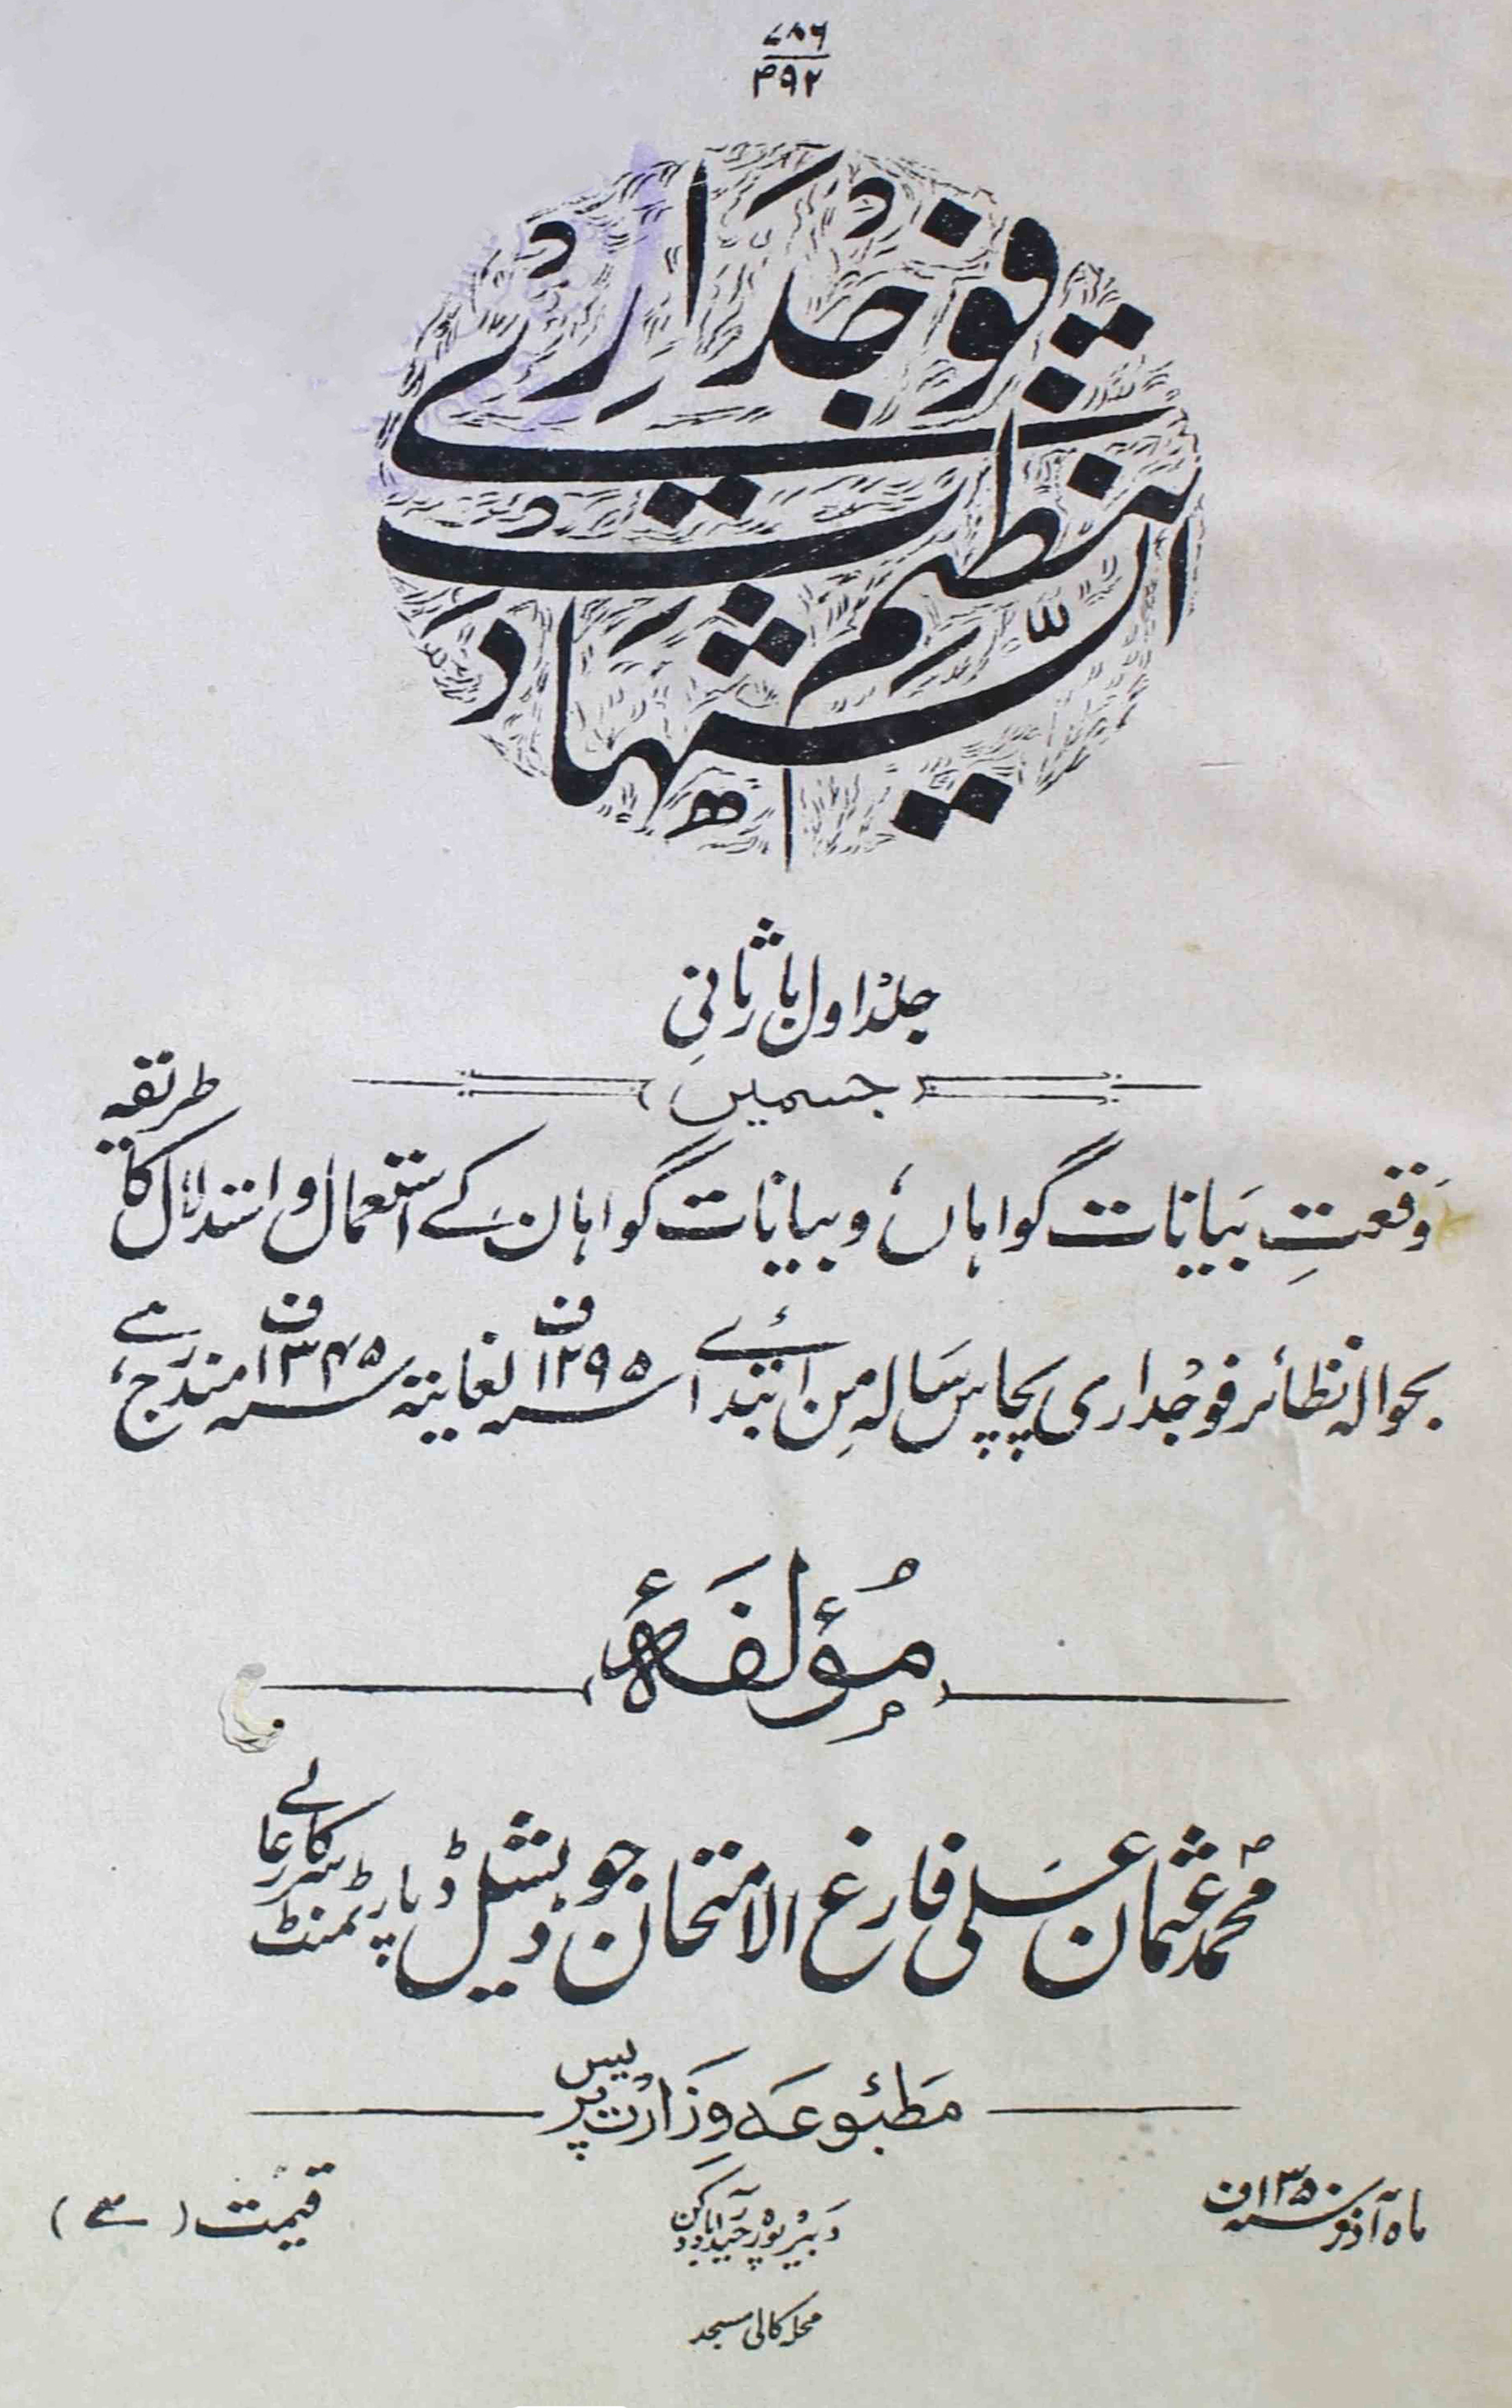 ۷۸۶
۴۹۲
فوجداری
تنظیم
الشہادت
جلد اول بار ثانی
(جسمیں)
وقعتِ بیانات گواہاں، و بیانات گواہان کے استعمال و استدلال کا طریقہ
بحوالہ نظائر فوجداری پچاس سالہ مِن ابتدائے ۱۲۹۵ ف لغایتہ ۱۳۴۵ ف مندرج ہے
مؤلفہٗ
محمد عثمان علی فارغ الامتحان جوڈیشل ڈپارٹمنٹ سرکار عالے
مطبوعہ وزارت پریس
ماہ آذر ۱۳۵۰ ف
دبیر پورہ حیدرآباد دکن
قیمت ( )
محلہ کالی مسجد